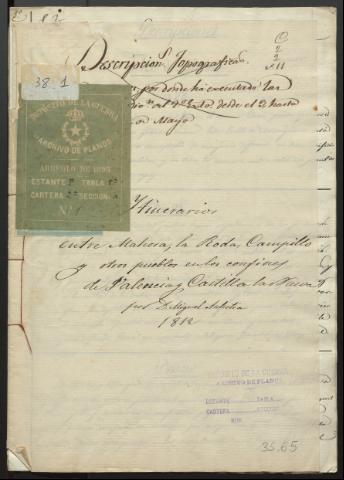 Descripcion Topografica
38-1
por donde ha executado las
al 2º Exto desde el 2 hasta
de Mayo
DEPOSITO DE LA GUERRA
ARCHIVO DE PLANOS
ARREGLO DE 1895
ESTANTE TABLA
CARTERA SECCION
Nº
Itinerarios
entre Mahora, la Roda, Campillo
y otros pueblos en los confines
de Valencia y Castilla la Nueva
por D. Miguel
1812
DEPOSITO DE LA GUERRA
ARCHIVO DE PLANOS
ESTANTE TABLA
CARTERA SECCION
NUM
35.65